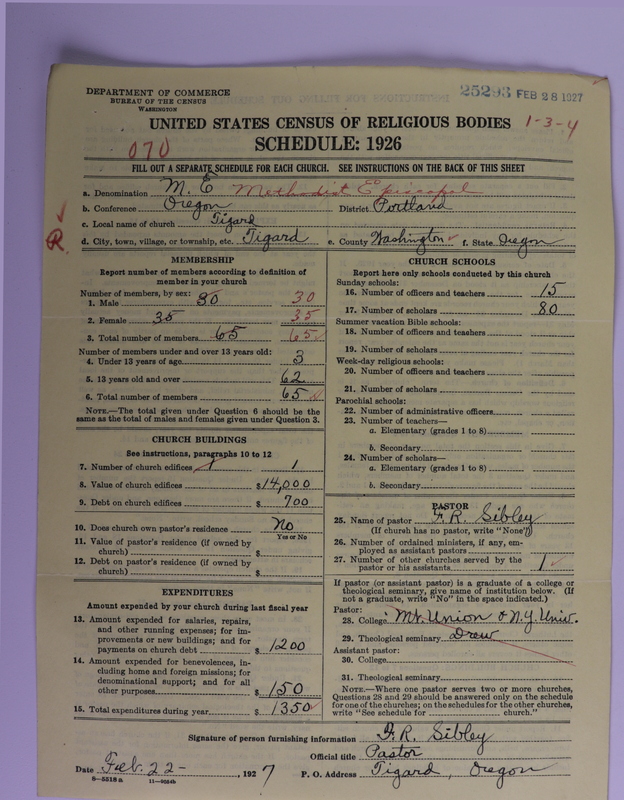 DEPARTMENT OF COMMERCE
BUREAU OF THE CENSUS
WASHINGTON
25293 FEB 28 1927
UNITED STATES CENSUS OF RELIGIOUS BODIES 1-3-4
SCHEDULE: 1926
070
FILL OUT A SEPARATE SCHEDULE FOR EACH CHURCH. SEE INSTRUCTIONS ON THE BACK OF THIS SHEET
a. Denomination M. E Methodist Episcopal
b. Conference Oregon District Portland
c. Local name of church Tigard
R.
d. City, town, village, or township, etc. Tigard e. County Washington f. State Oregon
MEMBERSHIP
Report number of members according to definition of
member in your church
Number of members, by sex:
1. Male 30 30
2. Female 35 35
3. Total number of members 65 65
Number of members under and over 13 years old:
4. Under 13 years of age 3
5. 13 years old and over 62
6. Total number of members 65
NOTE.—The total given under Question 6 should be the
same as the total of males and females given under Question 3.
CHURCH BUILDINGS
See instructions, paragraphs 10 to 12
7. Number of church edifices 1 1
8. Value of church edifices $14,000
9. Debt on church edifices $ 700
10. Does church own pastor's residence No
Yes or No
11. Value of pastor's residence (if owned by
church) $
12. Debt on pastor's residence (if owned by
church) $
EXPENDITURES
Amount expended by your church during last fiscal year
13. Amount expended for salaries, repairs,
and other running expenses; for im-
provements or new buildings; and for
payments on church debt $ 1200
14. Amount expended for benevolences, in-
cluding home and foreign missions; for
denominational support; and for all
other purposes $ 150
15. Total expenditures during year $ 1350
CHURCH SCHOOLS
Report here only schools conducted by this church
Sunday schools:
16. Number of officers and teachers 15
17. Number of scholars 80
Summer vacation Bible schools:
18. Number of officers and teachers
19. Number of scholars
Week-day religious schools:
20. Number of officers and teachers
21. Number of scholars
Parochial schools:
22. Number of administrative officers
23. Number of teachers—
a. Elementary (grades 1 to 8)
b. Secondary
24. Number of scholars—
a. Elementary (grades 1 to 8)
b. Secondary
PASTOR
25. Name of pastor F. R. Sibley
(If church has no pastor, write "None")
26. Number of ordained ministers, if any, em-
ployed as assistant pastors
27. Number of other churches served by the
pastor or his assistants 1
If pastor (or assistant pastor) is a graduate of a college or
theological seminary, give name of institution below. (If
not a graduate, write "No" in the space indicated.)
Pastor:
28. College Mt. Union & N.Y. Univ.
29. Theological seminary Drew
Assistant pastor:
30. College
31. Theological seminary
NOTE.—Where one pastor serves two or more churches,
Questions 28 and 29 should be answered only on the schedule
for one of the churches; on the schedules for the other churches,
write "See schedule for church."
Signature of person furnishing information F. R. Sibley
Official title Pastor
Date Feb. 22- , 1927 P. O. Address Tigard, Oregon
8—5518 a 11—9524b